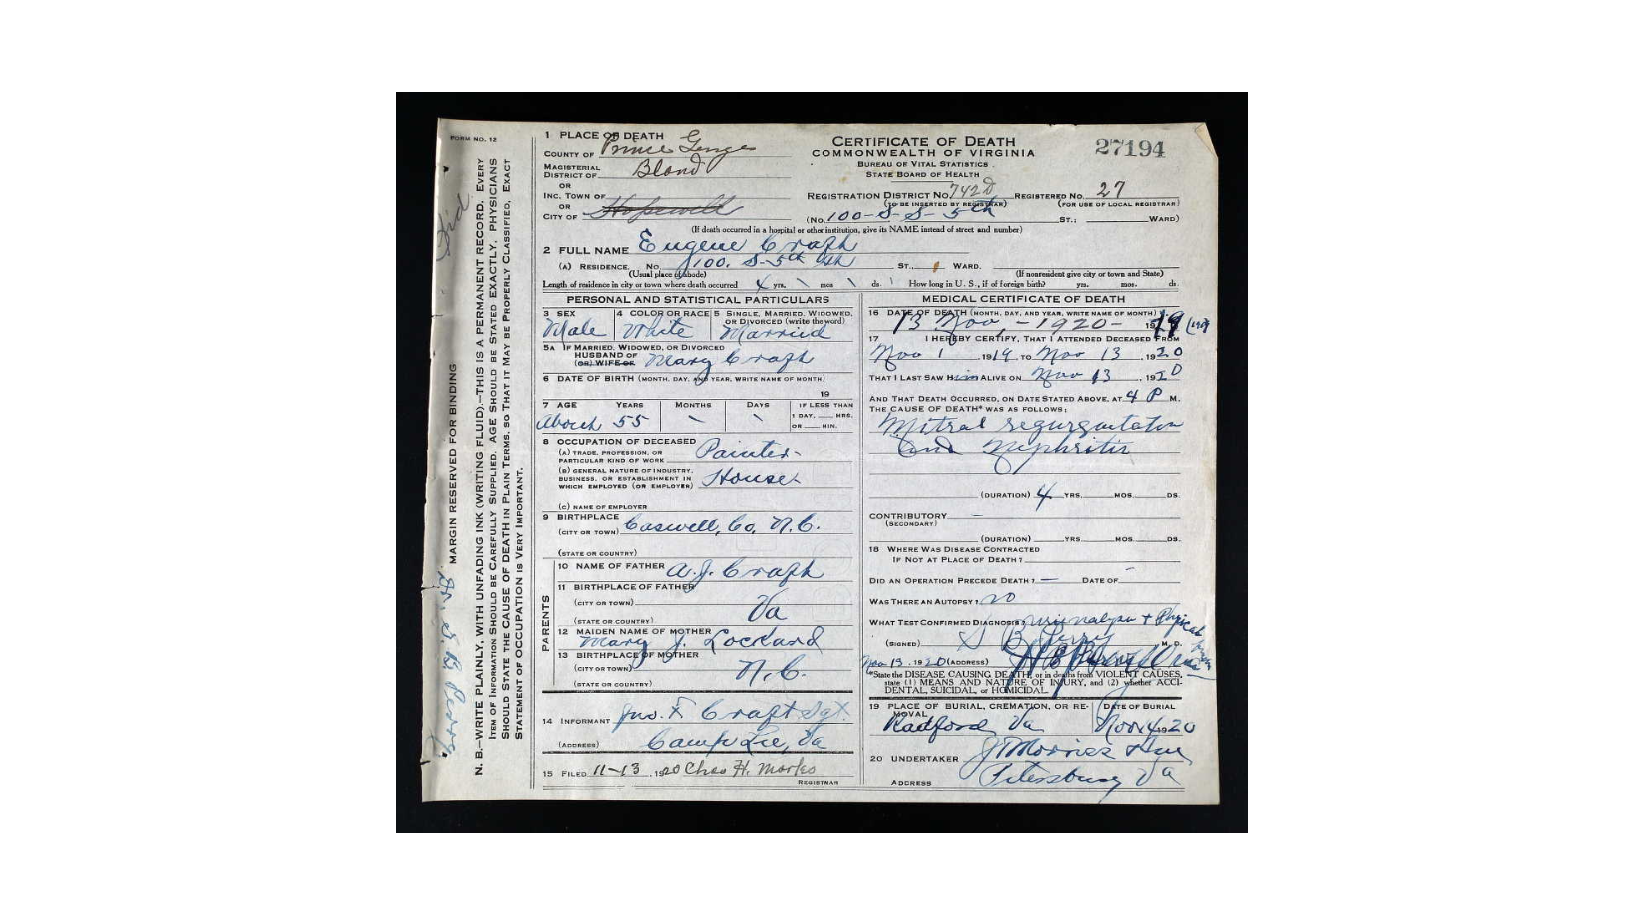 FORM NO. 12
MARGIN RESERVED FOR BINDING
N. B.—WRITE PLAINLY, WITH UNFADING INK (WRITING FLUID).—THIS IS A PERMANENT RECORD. EVERY
ITEM OF INFORMATION SHOULD BE CAREFULLY SUPPLIED. AGE SHOULD BE STATED EXACTLY. PHYSICIANS
SHOULD STATE THE CAUSE OF DEATH IN PLAIN TERMS, SO THAT IT MAY BE PROPERLY CLASSIFIED. EXACT
STATEMENT OF OCCUPATION IS VERY IMPORTANT.
Dr. S. B. Perry
1 PLACE OF DEATH
COUNTY OF Prince George
MAGISTERIAL
DISTRICT OF Bland
OR
INC. TOWN OF
OR
CITY OF Hopewell
CERTIFICATE OF DEATH
COMMONWEALTH OF VIRGINIA
BUREAU OF VITAL STATISTICS
STATE BOARD OF HEALTH
27194
REGISTRATION DISTRICT NO. 742D REGISTERED NO. 27
(TO BE INSERTED BY REGISTRAR) (FOR USE OF LOCAL REGISTRAR)
(No. 100-S-S-5th ST.; WARD)
(If death occurred in a hospital or other institution, give its NAME instead of street and number)
2 FULL NAME Eugene Craft
(A) RESIDENCE. No. 100. S-5th ST., WARD.
(Usual place of abode) (If nonresident give city or town and State)
Length of residence in city or town where death occurred yrs. mos ds. How long in U. S., if of foreign birth? yrs. mos. ds.
PERSONAL AND STATISTICAL PARTICULARS
3 SEX
Male
4 COLOR OR RACE
White
5 SINGLE, MARRIED, WIDOWED,
OR DIVORCED (write the word)
Married
5A IF MARRIED, WIDOWED, OR DIVORCED
HUSBAND OF
(OR) WIFE OF Mary Craft
6 DATE OF BIRTH (MONTH, DAY, AND YEAR, WRITE NAME OF MONTH)
19
7 AGE YEARS MONTHS DAYS IF LESS THAN
1 DAY, HRS.
OR MIN.
About 55
8 OCCUPATION OF DECEASED
(A) TRADE, PROFESSION, OR
PARTICULAR KIND OF WORK Painter
(B) GENERAL NATURE OF INDUSTRY,
BUSINESS, OR ESTABLISHMENT IN
WHICH EMPLOYED (OR EMPLOYER) House
(C) NAME OF EMPLOYER
9 BIRTHPLACE
(CITY OR TOWN) Caswell, Co, N.C.
(STATE OR COUNTRY)
PARENTS
10 NAME OF FATHER A.J. Craft
11 BIRTHPLACE OF FATHER
(CITY OR TOWN)
(STATE OR COUNTRY) Va
12 MAIDEN NAME OF MOTHER
Mary J. Lockard
13 BIRTHPLACE OF MOTHER
(CITY OR TOWN)
(STATE OR COUNTRY) N.C.
14 INFORMANT Jno. F. Craft Sgt.
(ADDRESS) Camp Lee, Va
15 FILED 11-13, 1920 Chas H. Marks
REGISTRAR
MEDICAL CERTIFICATE OF DEATH
16 DATE OF DEATH (MONTH, DAY, AND YEAR, WRITE NAME OF MONTH)
13 Nov - 1920 - 19
17 I HEREBY CERTIFY, THAT I ATTENDED DECEASED FROM
Nov 1, 1919, TO Nov 13, 1920
THAT I LAST SAW Him ALIVE ON Nov 13, 1920
AND THAT DEATH OCCURRED, ON DATE STATED ABOVE, AT 4 P M.
THE CAUSE OF DEATH* WAS AS FOLLOWS:
Mitral regurgitation
and Nephritis
(DURATION) 4 YRS. MOS. DS.
CONTRIBUTORY
(SECONDARY)
(DURATION) YRS. MOS. DS.
18 WHERE WAS DISEASE CONTRACTED
IF NOT AT PLACE OF DEATH?
DID AN OPERATION PRECEDE DEATH? — DATE OF
WAS THERE AN AUTOPSY? no
WHAT TEST CONFIRMED DIAGNOSIS? urinalysis + Physical
(SIGNED) S B Perry M. D.
Nov 13, 1920 (ADDRESS)
*State the DISEASE CAUSING DEATH, or in deaths from VIOLENT CAUSES,
state (1) MEANS AND NATURE OF INJURY, and (2) whether ACCI-
DENTAL, SUICIDAL, or HOMICIDAL.
19 PLACE OF BURIAL, CREMATION, OR RE-
MOVAL
Radford Va
DATE OF BURIAL
Nov 14 1920
20 UNDERTAKER J T Morriss & Son
ADDRESS Petersburg Va